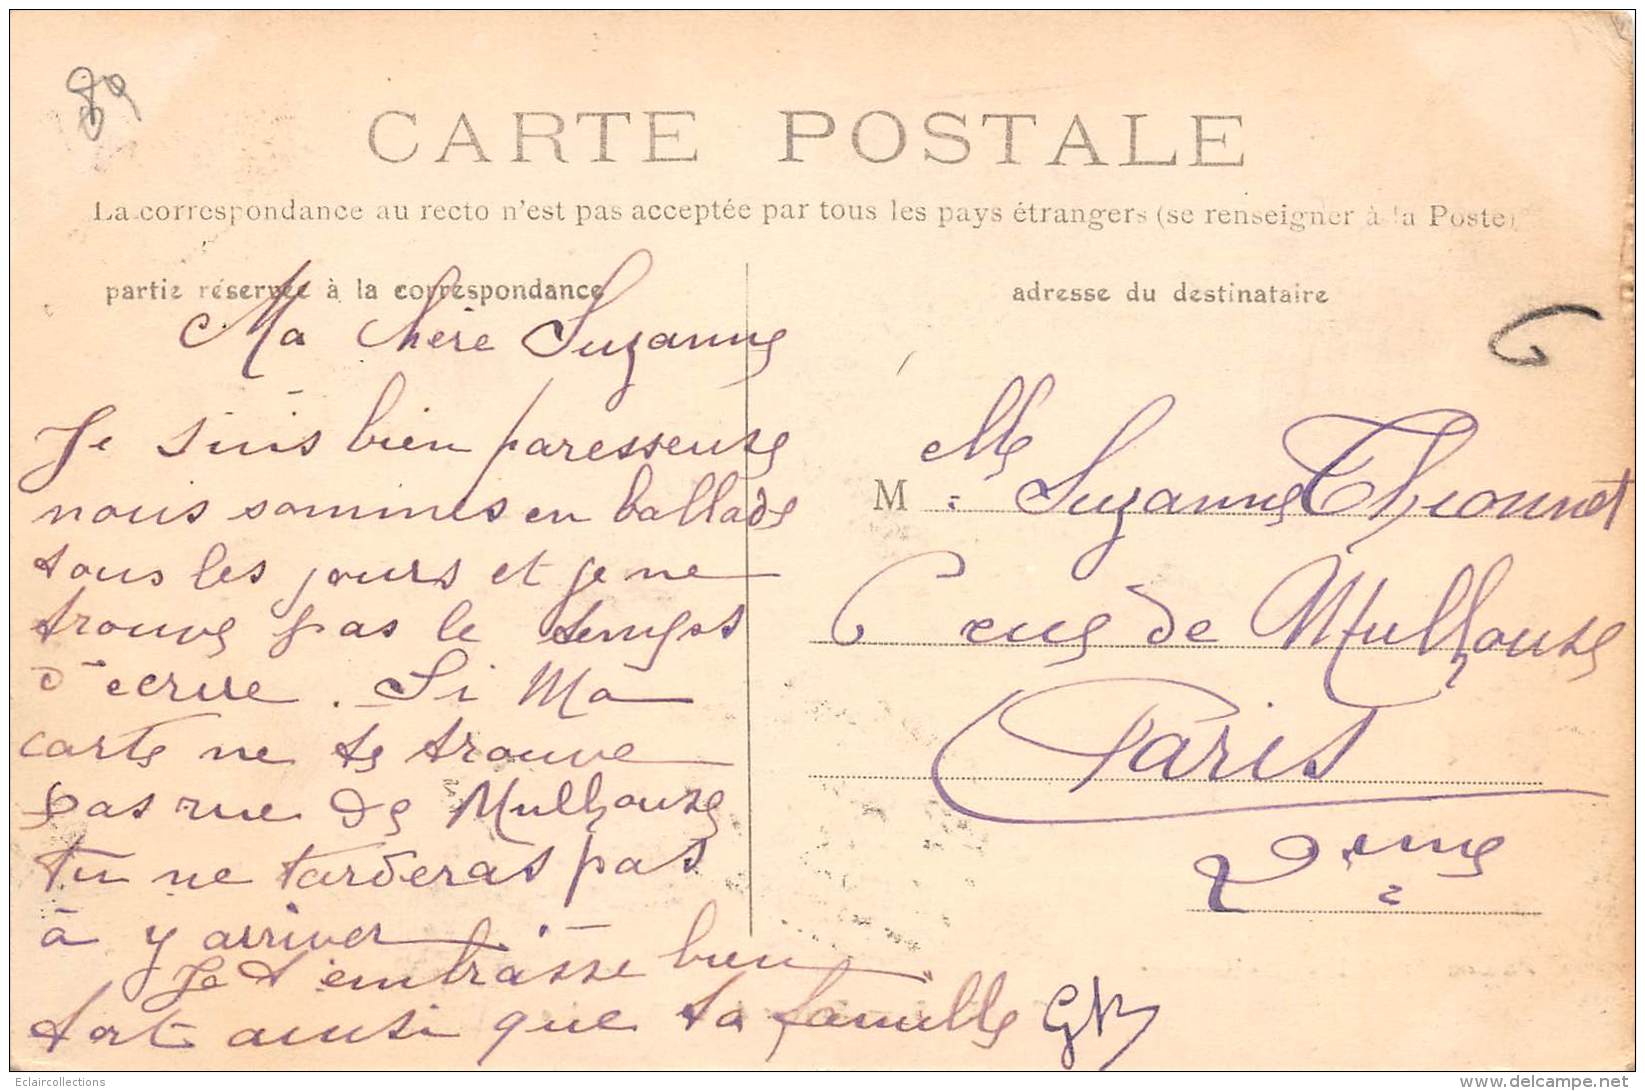 89
CARTE POSTALE
La correspondance au recto n'est pas acceptée par tous les pays étrangers (se renseigner à la Poste)
partie réservée à la correspondance
Ma chère Suzanne
Je suis bien paresseuse
nous sommes en ballade
tous les jours et je ne
trouve pas le temps
d'écrire. Si Ma
carte ne te trouve
pas rue de Mulhouse
tu ne tarderas pas
à y arriver.
Je t'embrasse bien
fort ainsi que ta famille
adresse du destinataire
M elle Suzanne Thionnet
6 rue de Mulhouse
Paris
2eme
Eclaircollections
www.delcampe.net